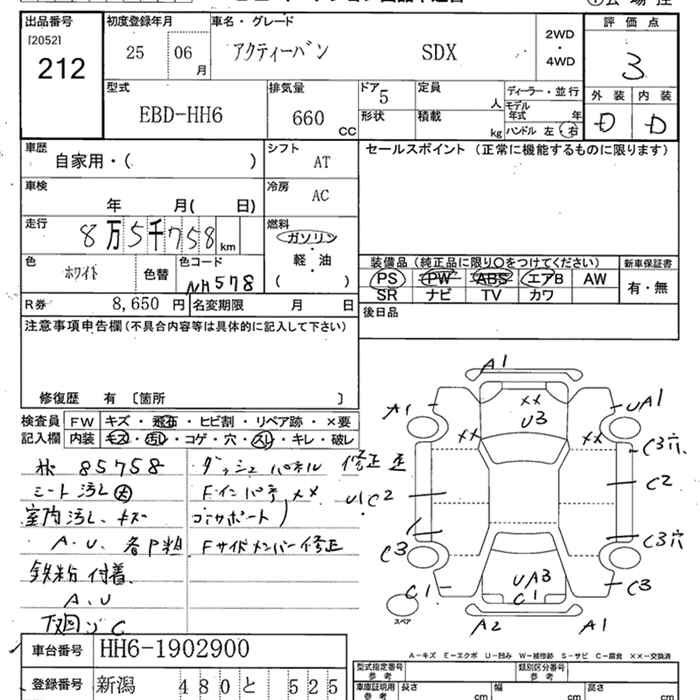 出品番号
[2052]
212
初度登録年月
25 06 月
車名・グレード
アクティーバン SDX
2WD
・
4WD
評価点
3
外装 内装
D D
型式
EBD-HH6
排気量
660 CC
ドア
5
形状
定員
人
積載
kg
ディーラー・並行
モデル年式 年
ハンドル 左・右
車歴
自家用・( )
シフト
AT
車検
年 月( 日)
冷房
AC
走行
8万5千758 km
燃料
ガソリン
軽・油
( )
色
ホワイト
色替
色コード
NH578
R券 8,650 円
名変期限 月 日
セールスポイント (正常に機能するものに限ります)
装備品 (純正品に限り○をつけてください)
PS PW ABS エアB AW
SR ナビ TV カワ
新車保証書
有・無
後日品
注意事項申告欄(不具合内容等は具体的に記入して下さい)
修復歴 有 〔箇所 〕
検査員記入欄
FW キズ・飛石・ヒビ割・リペア跡・×要
内装 キズ・汚レ・コゲ・穴・スレ・キレ・破レ
85758
シート汚レ大
室内汚レ、キズ
A.U. 各P
鉄粉付着
A.U
下廻リ C
ダッシュパネル 修正
Fインパネ
コアサポート
Fサイドメンバー修正
A1
A1
UA1
××
U3
××
××
C3穴
U1C2
C2
C3
C3穴
C1
C3
UA3
C1
A2
A1
スペア
A-キズ E-エクボ U-凹み W-補修跡 S-サビ C-腐食 ××-交換済
車台番号 HH6-1902900
登録番号 新潟 480 と 525
型式指定番号
参考
類別区分番号
参考
車庫証明用
参考
長さ cm
幅 cm
高さ cm